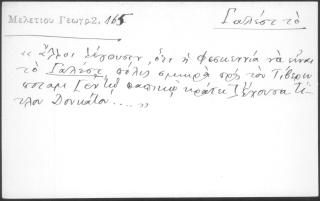 Μελετίου Γεωγρ2. 165
Γαλέστ τὸ
« Ἄλλοι λέγουσιν, ὅτι ἡ Φεσκεννία νὰ εἶναι
τὸ Γαλέστ, πόλις σμικρὰ πρὸς τὸν Τίβεριν
ποταμ ἐν τῷ παπικῷ κράτει ἔχουσα τί-
τλον Δουκάτου.... »